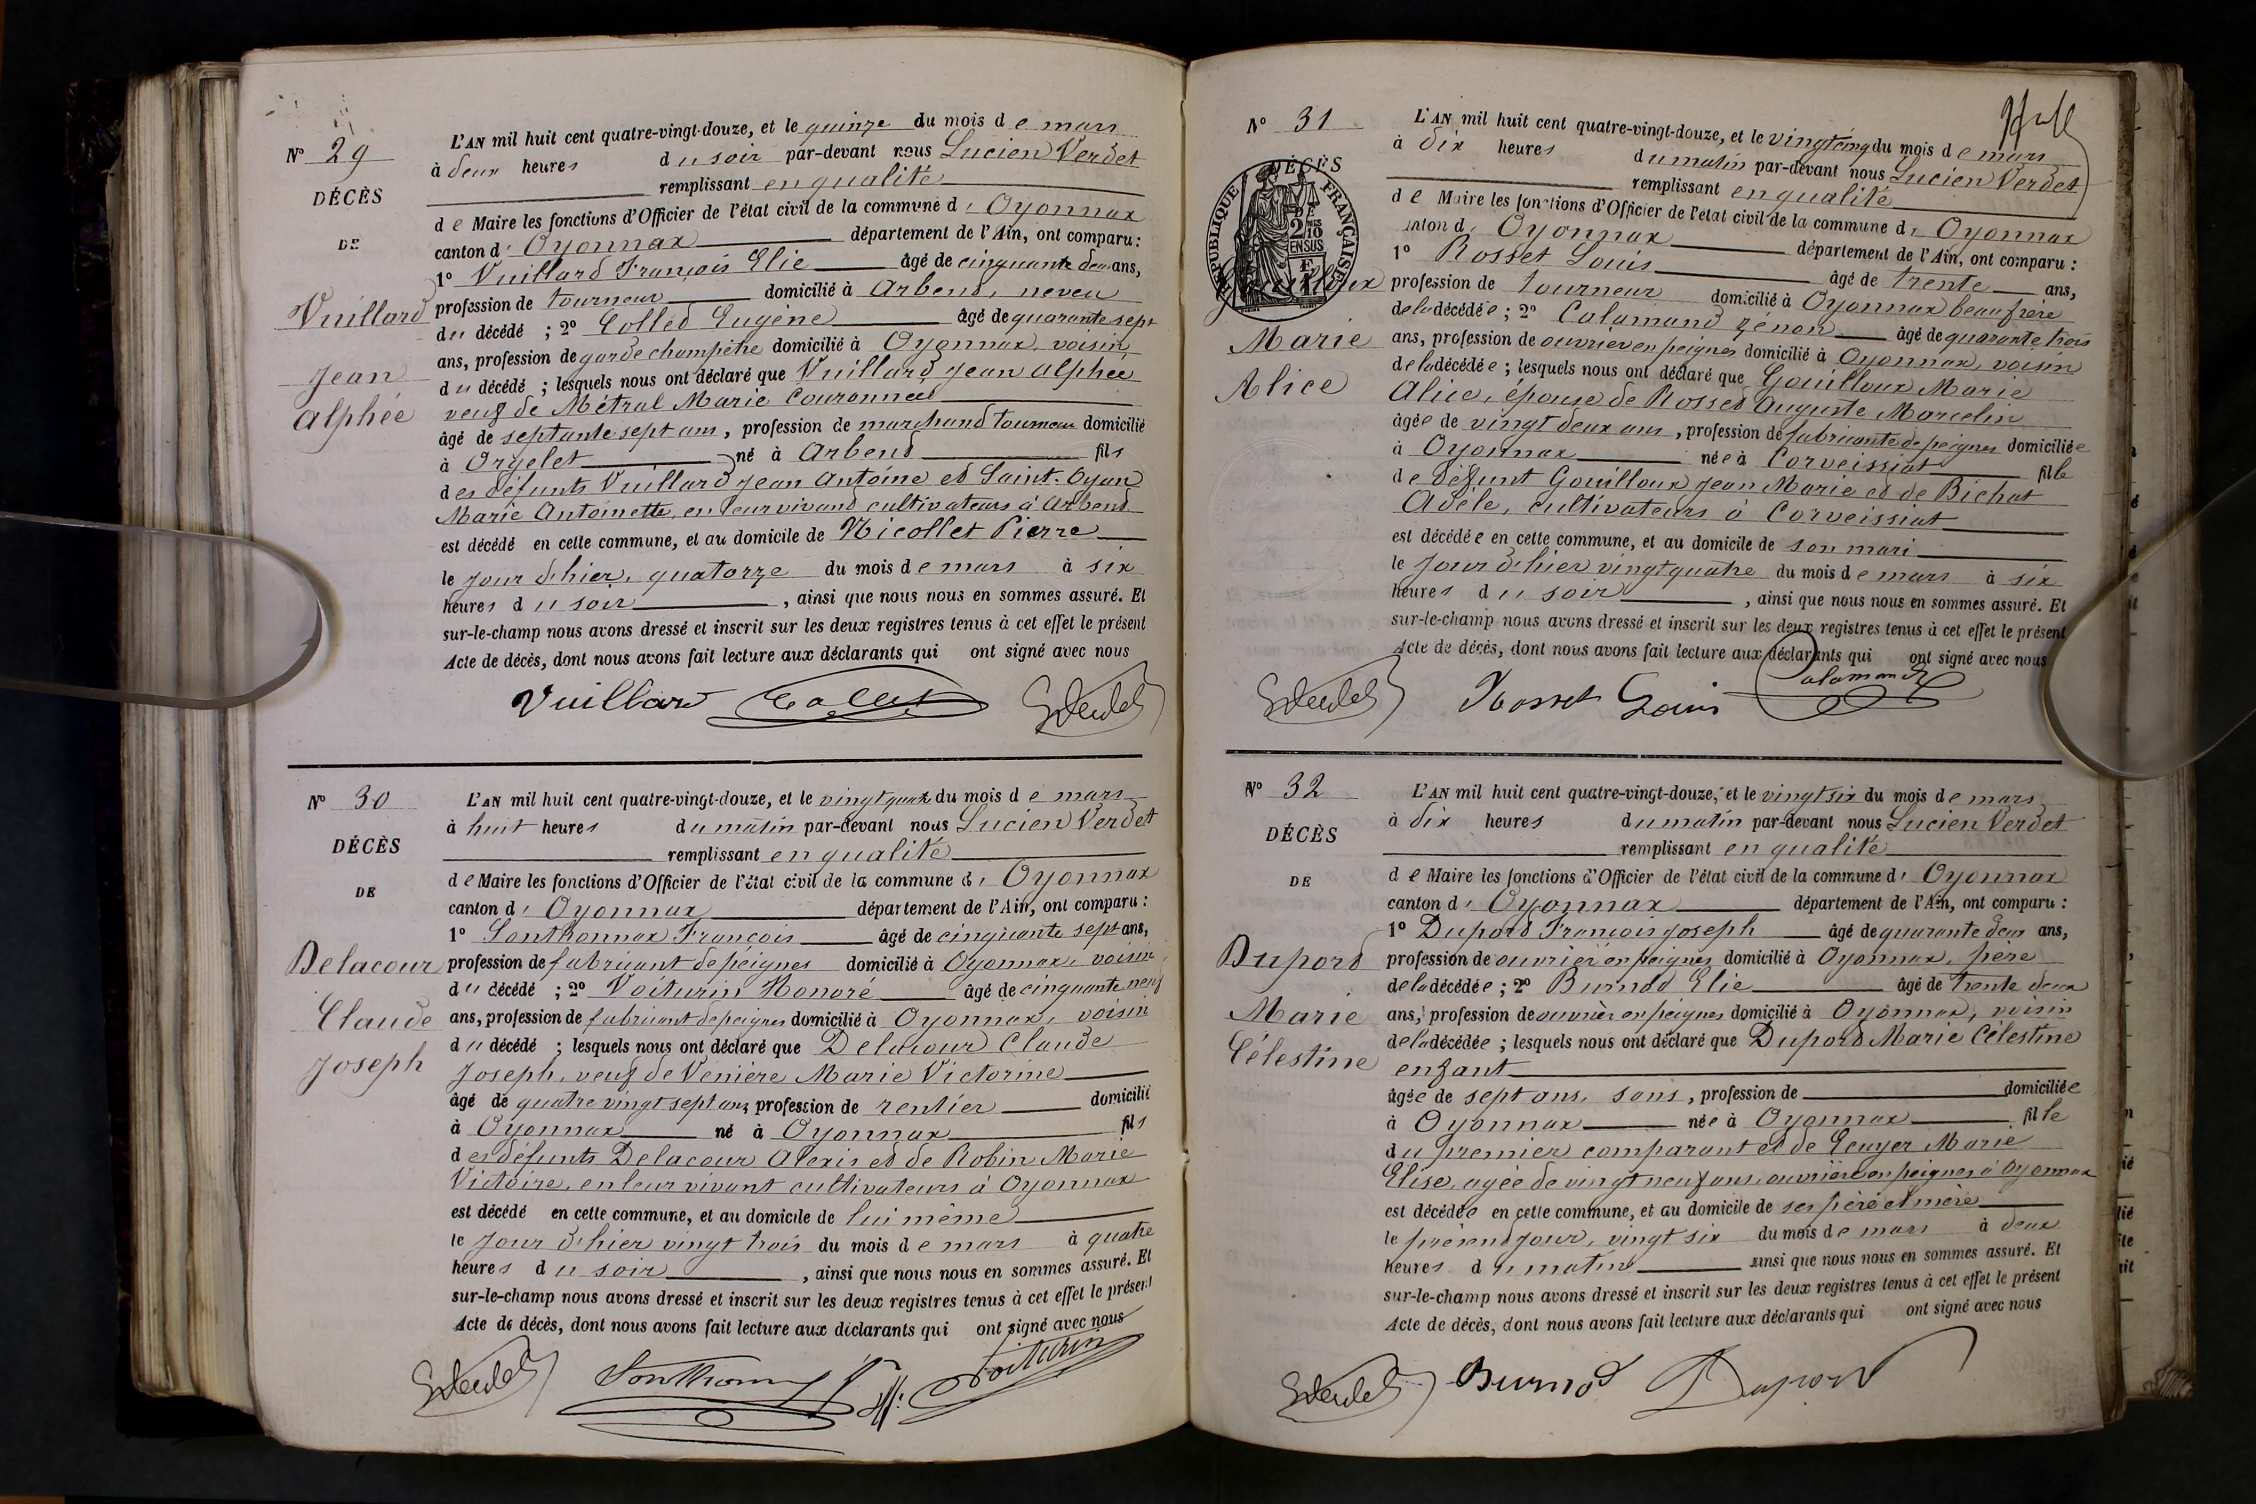 N° 29
DÉCÈS
DE
Vuillard
Jean
Alphée
L'AN mil huit cent quatre-vingt-douze, et le quinze du mois de mars
à deux heures du soir par-devant nous Lucien Verdet
remplissant en qualité
de Maire les fonctions d'Officier de l'état civil de la commune d' Oyonnax
canton d' Oyonnax département de l'Ain, ont comparu :
1° Vuillard François Elie âgé de cinquante deux ans,
profession de tourneur domicilié à Arbent, neveu
du décédé ; 2° Collet Eugène âgé de quarante sept
ans, profession de garde champêtre domicilié à Oyonnax, voisin
du décédé ; lesquels nous ont déclaré que Vuillard Jean Alphée
veuf de Métral Marie Couronnée
âgé de septante sept ans, profession de marchand tourneur domicilié
à Orgelet né à Arbent fils
des défunts Vuillard Jean Antoine et Saint-Oyan
Marie Antoinette, en leur vivant cultivateurs à Arbent
est décédé en cette commune, et au domicile de Nicollet Pierre
le jour d'hier, quatorze du mois de mars à six
heures du soir, ainsi que nous nous en sommes assuré. Et
sur-le-champ nous avons dressé et inscrit sur les deux registres tenus à cet effet le présent
Acte de décès, dont nous avons fait lecture aux déclarants qui ont signé avec nous
Vuillard Collet
N° 30
DÉCÈS
DE
Delacour
Claude
Joseph
L'AN mil huit cent quatre-vingt-douze, et le vingt quatre du mois de mars
à huit heures du matin par-devant nous Lucien Verdet
remplissant en qualité
de Maire les fonctions d'Officier de l'état civil de la commune d' Oyonnax
canton d' Oyonnax département de l'Ain, ont comparu :
1° Sonthonnax François âgé de cinquante sept ans,
profession de fabricant de peignes domicilié à Oyonnax, voisin
du décédé ; 2° Voiturin Honoré âgé de cinquante neuf
ans, profession de fabricant de peignes domicilié à Oyonnax, voisin
du décédé ; lesquels nous ont déclaré que Delacour Claude
Joseph, veuf de Venière Marie Victorine
âgé de quatre vingt sept ans profession de rentier domicilié
à Oyonnax né à Oyonnax fils
des défunts Delacour Alexis et de Robin Marie
Victoire, en leur vivant cultivateurs à Oyonnax
est décédé en cette commune, et au domicile de lui même
le jour d'hier vingt trois du mois de mars à quatre
heures du soir, ainsi que nous nous en sommes assuré. Et
sur-le-champ nous avons dressé et inscrit sur les deux registres tenus à cet effet le présent
Acte de décès, dont nous avons fait lecture aux déclarants qui ont signé avec nous
Voiturin
N° 31
DÉCÈS
RÉPUBLIQUE FRANÇAISE
2/10 EN SUS
Gouilloux
Marie
Alice
L'AN mil huit cent quatre-vingt-douze, et le vingt cinq du mois de mars
à dix heures du matin par-devant nous Lucien Verdet
remplissant en qualité
de Maire les fonctions d'Officier de l'état civil de la commune d' Oyonnax
canton d' Oyonnax département de l'Ain, ont comparu :
1° Rosset Louis âgé de trente ans,
profession de tourneur domicilié à Oyonnax beau frère
de la décédée ; 2° Calamand Zénon âgé de quarante trois
ans, profession de ouvrier en peignes domicilié à Oyonnax, voisin
de la décédée ; lesquels nous ont déclaré que Gouilloux Marie
Alice, épouse de Rosset Auguste Marcelin
âgée de vingt deux ans, profession de fabricante de peignes domiciliée
à Oyonnax née à Corveissiat fille
de défunt Gouilloux Jean Marie et de Bichat
Adèle, cultivateurs à Corveissiat
est décédée en cette commune, et au domicile de son mari
le jour d'hier vingt quatre du mois de mars à six
heures du soir, ainsi que nous nous en sommes assuré. Et
sur-le-champ nous avons dressé et inscrit sur les deux registres tenus à cet effet le présent
Acte de décès, dont nous avons fait lecture aux déclarants qui ont signé avec nous
Rosset Louis Calamand
N° 32
DÉCÈS
DE
Dupord
Marie
Célestine
L'AN mil huit cent quatre-vingt-douze, et le vingt six du mois de mars
à dix heures du matin par-devant nous Lucien Verdet
remplissant en qualité
de Maire les fonctions d'Officier de l'état civil de la commune d' Oyonnax
canton d' Oyonnax département de l'Ain, ont comparu :
1° Dupord François Joseph âgé de quarante deux ans,
profession de ouvrier en peignes domicilié à Oyonnax, père
de la décédée ; 2° Burnod Elie âgé de trente deux
ans, profession de ouvrier en peignes domicilié à Oyonnax, voisin
de la décédée ; lesquels nous ont déclaré que Dupord Marie Célestine
enfant
âgée de sept ans, sans, profession de domiciliée
à Oyonnax née à Oyonnax fille
du premier comparant et de Ecuyer Marie
Elise, agée de vingt neuf ans, ouvrière en peignes à Oyonnax
est décédée en cette commune, et au domicile de ses père et mère
le présent jour, vingt six du mois de mars à deux
heures du matin ainsi que nous nous en sommes assuré. Et
sur-le-champ nous avons dressé et inscrit sur les deux registres tenus à cet effet le présent
Acte de décès, dont nous avons fait lecture aux déclarants qui ont signé avec nous
Burnod Dupord